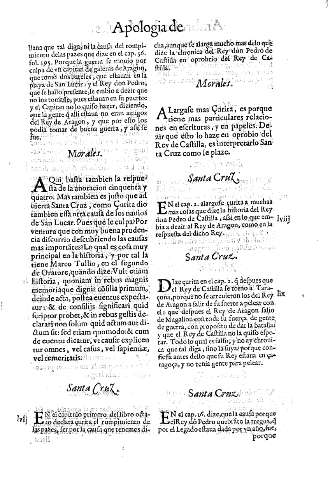 Apologia de
llana que tal digni ni la causa del rompi-
miento de las pazes que dize en el cap. 56.
fol. 295. Porque se mouio por
culpa de vn capitan de galeras de Aragon,
que tomò dos baxeles, que estauan en la
playa de San Lucar: y el Rey don Pedro,
que se hallò presente, le embio a dezir que
no los tomasse, pues estauan en su puerto:
y el Capitan no lo quiso hazer, diziendo,
que la gente q̃ alli estaua no eran amigos
del Rey de Aragon, y que por esso los
podia tomar de buena guerra, y assi se
fue.
Morales.
AQui basta tambien la respues-
ta de la anotacion cinquenta y
quatro. Mas tambien es justo que ad
uierta Santa Cruz, como Çurita dio
tambien essa otra causa de los nauios
de San Lucar. Pues què le culpa? Por
ventura que con muy buena pruden-
cia discurrio descubriendo las causas
mas importãtes? Lo qual es cosa muy
principal en la historia, y por tal la
tiene Marco Tullio, en el segundo
de Oratore, quando dize. Vult etiam
historia, quoniam in rebus magnis
memoriaque dignis cõsilia primum,
deinde acta, postea euentus expecta-
tur: & de consilijs significari quid
scriptor probet, & in rebus gestis de-
clarari non solum quid actum aut di-
ctum sit: sed etiam quomodo: & cum
de euentu dicatur, vt causæ explicen-
tur omnes, vel casus, vel sapientiæ,
vel temeritatis.
Santa Cruz.
EN el capitulo primero del libro octa-
uo
las pazes, ser por la causa que tenemos di-
cha, aunque se alarga mucho mas de lo que
dize la historia del Rey don Pedro de
Castilla en oprobrio del Rey de Cas-
tilla.
Morales.
ALargase mas Çurita, es porque
tiene mas particulares relacio-
nes en escrituras, y en papeles. De-
zir que esto lo haze en oprobio del
Rey de Castilla, es interpretarlo San-
ta Cruz como le plaze.
Santa Cruz.
EN el cap. 2. alargase çurita a muchas
otras cosas que dize la historia del Rey
don Pedro de Castilla, assi en lo que em-
bia a dezir al Rey de Aragon, como en la
respuesta del dicho Rey.
lviij
Santa Cruz.
DIze çurita en el cap. 11. q̃ despues que
el Rey de Castilla se tornò a Tara-
çona, porque no se atreuieron los del Rey
de Aragon a salir de su fuerte a pelear con
el. E despues que el Rey de Aragon salio
de Magallon con toda su fuerça de gente
de guerra, con proposito de dar la batalla:
y que el Rey de Castilla no la quiso espe-
rar. Todo lo qual es falso, y no ay chroni-
ca que tal diga, sino la suya: porque con-
fiesa antes desto que su Rey estaua en ça-
ragoça, y no tenia gente para pelear.
lix
Santa Cruz.
EN el cap. 16. dize, que la causa porque
el Rey dõ Pedro quebrãto la tregua, q̃
por el Legado estaua dada por vn año, fue,
porque